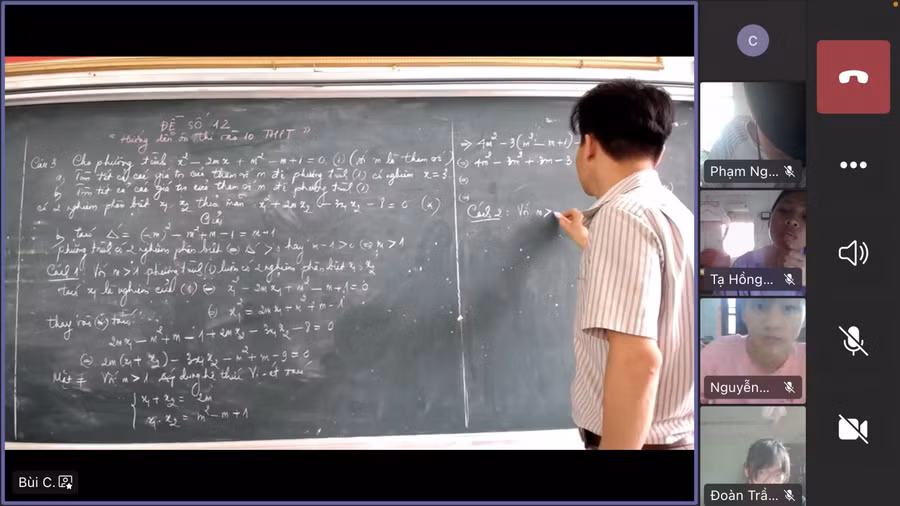 ĐỀ SỐ 12
"Hướng dẫn ôn thi vào 10 THPT"
Câu 3 Cho phương trình x² - 2mx + m² - m + 1 = 0 (1) (với m là tham số)
a, Tìm tất cả các giá trị của tham số m để phương trình (1) có nghiệm x = 3
b, Tìm tất cả các giá trị của tham số m để phương trình (1)
có 2 nghiệm phân biệt x₁ x₂ thỏa mãn x₁² + 2mx₂ - 3x₁x₂ - 8 = 0 (*)
Giải
b, Ta có Δ' = (-m)² - m² + m - 1 = m - 1
phương trình có 2 nghiệm phân biệt ⇔ Δ' > 0 hay m - 1 > 0 ⇔ m > 1
Cách 1 Với m > 1 phương trình (1) luôn có 2 nghiệm phân biệt x₁, x₂
Ta có x₁ là nghiệm của (1) ⇔ x₁² - 2mx₁ + m² - m + 1 = 0
⇔ x₁² = 2mx₁ - m² + m - 1
thay vào (*) ta có
2mx₁ - m² + m - 1 + 2mx₂ - 3x₁x₂ - 8 = 0
⇔ 2m(x₁ + x₂) - 3x₁x₂ - m² + m - 9 = 0
Mặt ≠ Với m > 1 áp dụng hệ thức Vi-et ta có
x₁ + x₂ = 2m
x₁.x₂ = m² - m + 1
⇒ 4m² - 3(m² - m + 1)
⇔ 4m² - 3m² + 3m - 3
⇔
Cách 2: Với m >
Bùi C.
C
Phạm Ng...
Tạ Hồng...
Nguyễn...
Đoàn Trầ...